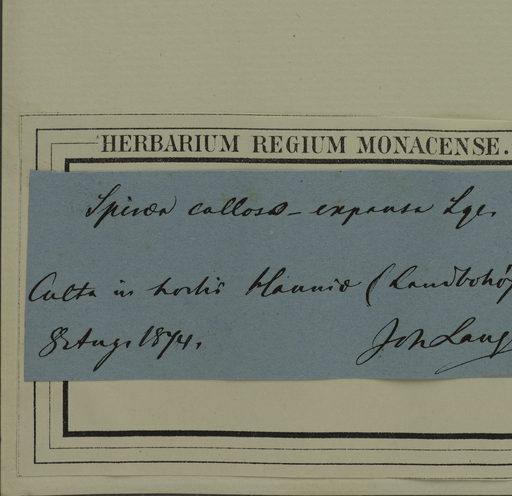 HERBARIUM REGIUM MONACENSE.
Spiræa calloso-expansa Lge.
Culta in hortis Hauniæ (Landbohöj
8 Aug. 1874.
Joh Lang